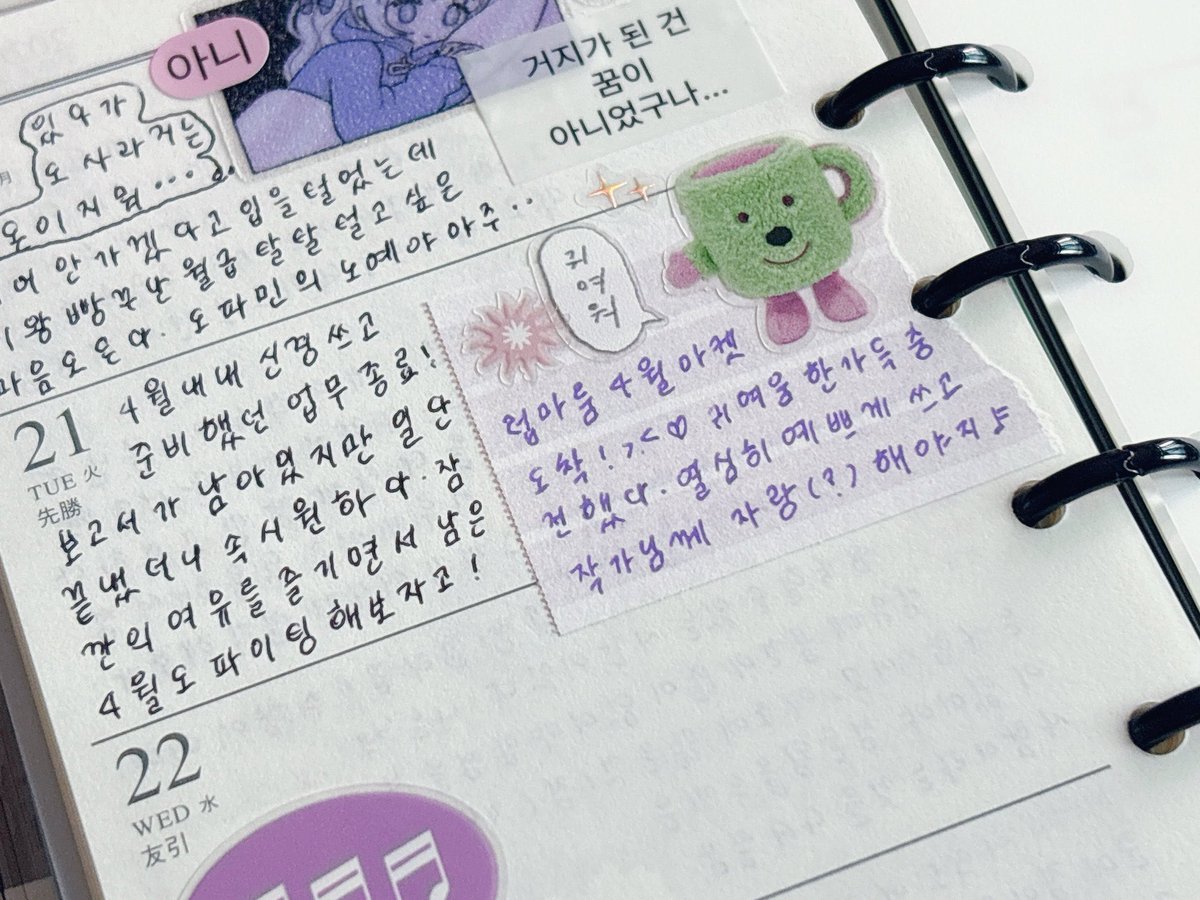 아니
거지가 된 건
꿈이
아니었구나...
있 우 가
도 사라지는
오 이 지 뭐...
어 안 가겠다고 입을 털었는데
1왕빵 끝난 월급 탈탈 털고 싶은
마음 오은다. 도파민의 노예야 아주..
21
TUE 火
先勝
4월 내내 신경 쓰고
준비했던 업무 종료!
보고서가 남아있지만 일단
끝냈더니 속 시원하다. 잠
깐의 여유를 즐기면서 남은
4월도 파이팅 해보자고!
귀
여
워
럽마룸 4월 마켓
도착! ><♡ 귀여움 한가득 충
전했다. 열심히 예쁘게 쓰고
작가님께 자랑(?) 해야지♪
22
WED 水
友引